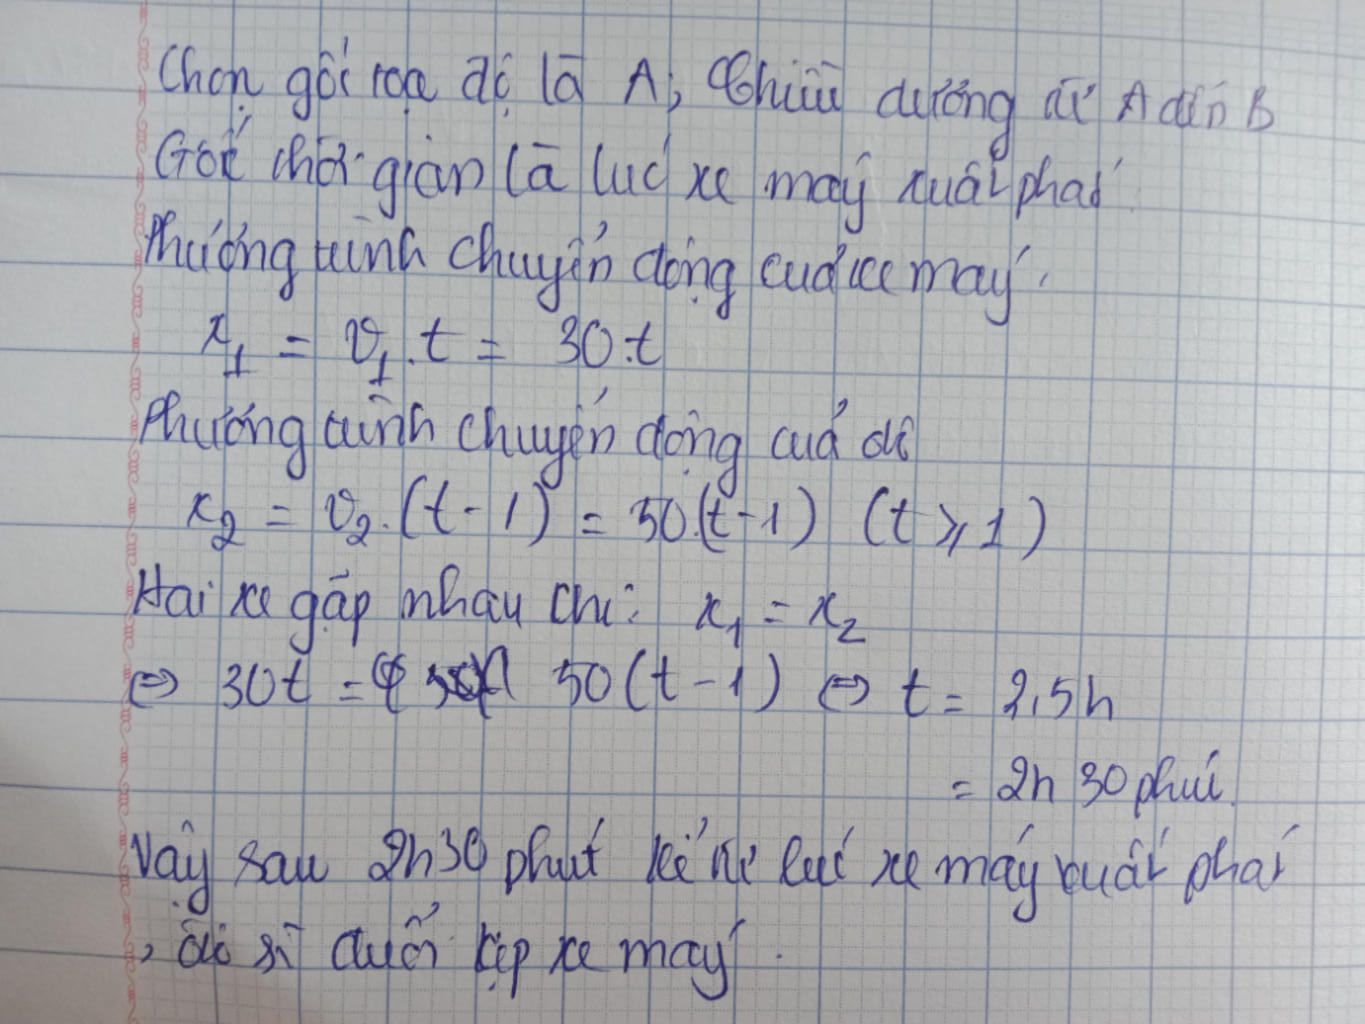 Chọn gốc toạ độ là A; Chiều dương từ A đến B
Gốc thời gian là lúc xe máy xuất phát.
Phương trình chuyển động của xe máy.
x₁ = v₁.t = 30.t
Phương trình chuyển động của ô tô
x₂ = v₂.(t-1) = 50.(t-1) (t ⩾ 1)
Hai xe gặp nhau khi: x₁ = x₂
⇔ 30t = 50(t-1) ⇔ t = 2,5h
= 2h 30 phút.
Vậy sau 2h30 phút kể từ lúc xe máy xuất phát
, sẽ đuổi kịp xe máy.